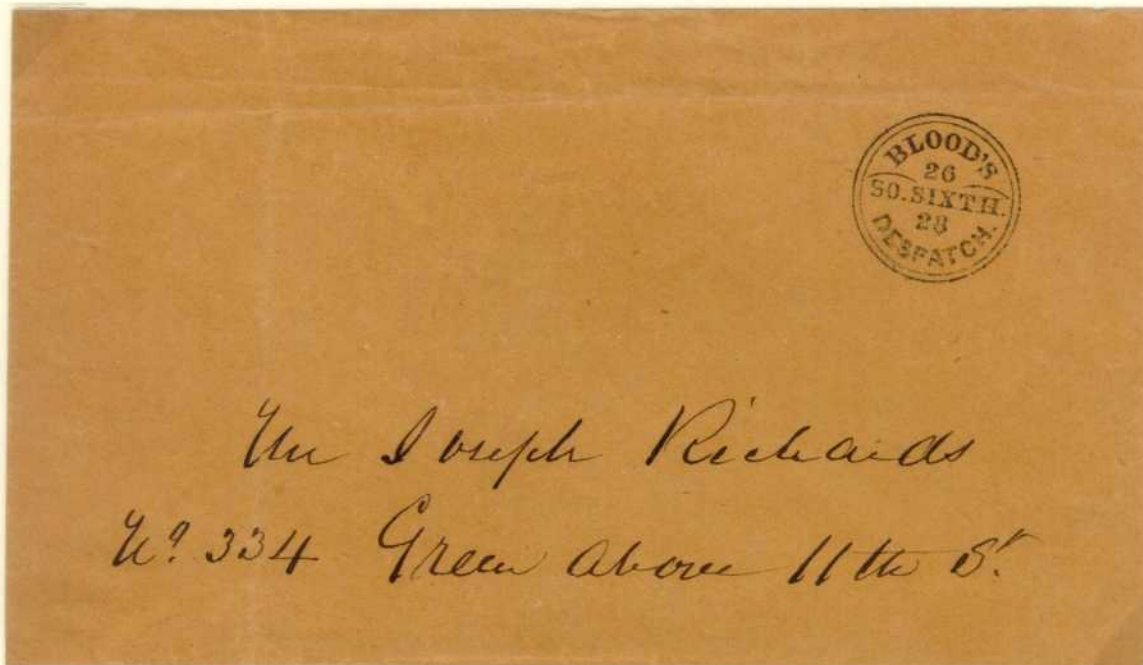 BLOOD'S
26
SO. SIXTH.
28
DESPATCH.
Mr Joseph Richards
No. 334 Green above 11th St